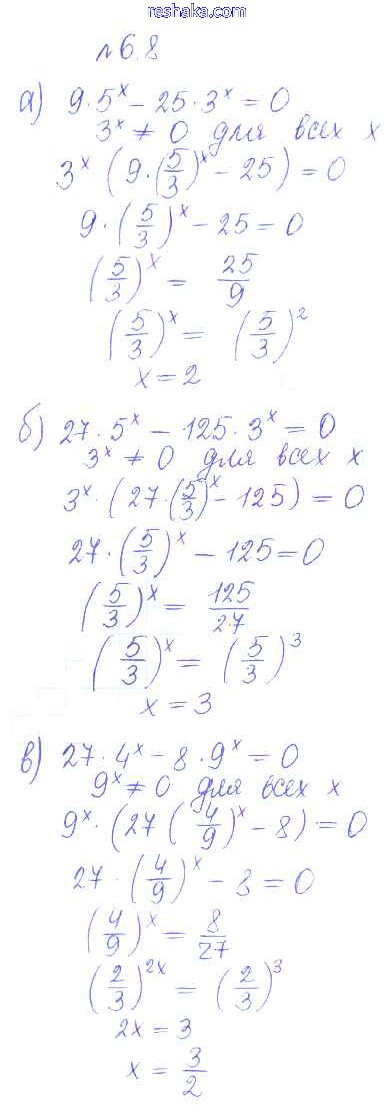 reshaka.com
№6.8
а) 9·5^x − 25·3^x = 0
3^x ≠ 0 для всех x
3^x (9·(5/3)^x − 25) = 0
9·(5/3)^x − 25 = 0
(5/3)^x = 25/9
(5/3)^x = (5/3)^2
x = 2
б) 27·5^x − 125·3^x = 0
3^x ≠ 0 для всех x
3^x·(27·(5/3)^x − 125) = 0
27·(5/3)^x − 125 = 0
(5/3)^x = 125/27
(5/3)^x = (5/3)^3
x = 3
в) 27·4^x − 8·9^x = 0
9^x ≠ 0 для всех x
9^x·(27(4/9)^x − 8) = 0
27·(4/9)^x − 8 = 0
(4/9)^x = 8/27
(2/3)^2x = (2/3)^3
2x = 3
x = 3/2